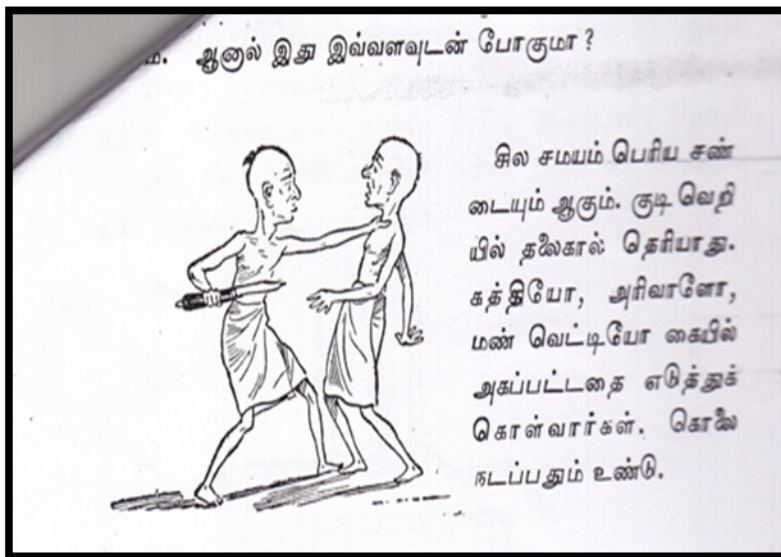 ம. ஆனால் இது இவ்வளவுடன் போகுமா?
சில சமயம் பெரிய சண்
டையும் ஆகும். குடி வெறி
யில் தலைகால் தெரியாது.
கத்தியோ, அரிவாளோ,
மண் வெட்டியோ கையில்
அகப்பட்டதை எடுத்துக்
கொள்வார்கள். கொலை
நடப்பதும் உண்டு.